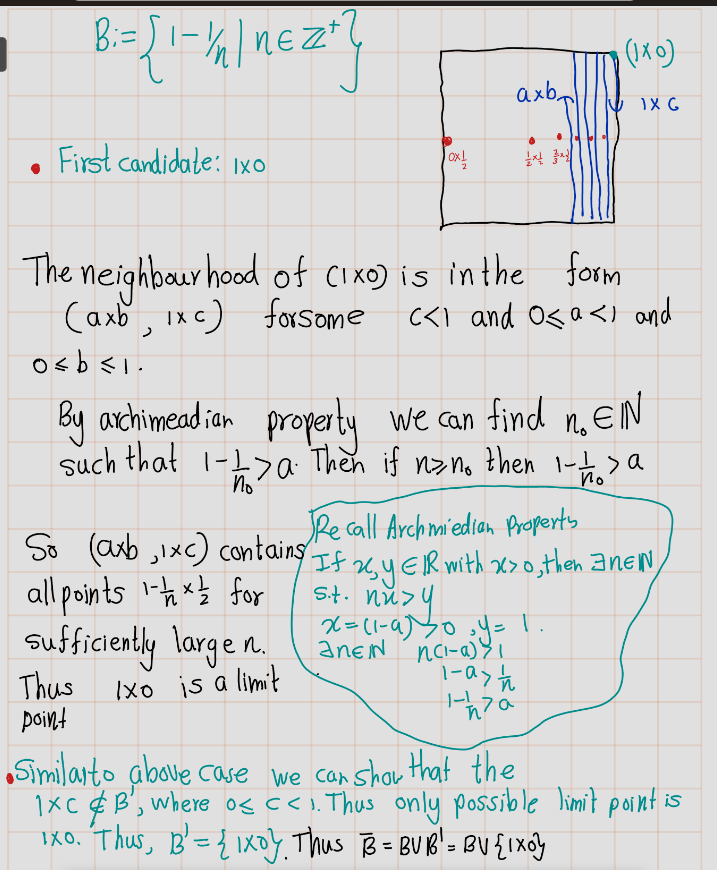 B:= { 1-1/n | n∈ℤ⁺ }
(1×0)
a×b
1×c
0×1/2
1/2×1/2 2/3×1/2
• First candidate: 1×0
The neighbourhood of (1×0) is in the form
(a×b, 1×c) for some c<1 and 0≤a<1 and
0≤b≤1.
By archimeadian property we can find n₀∈ℕ
such that 1-1/n₀>a. Then if n≥n₀ then 1-1/n₀>a
So (a×b,1×c) contains
all points 1-1/n×1/2 for
sufficiently large n.
Thus 1×0 is a limit
point
Recall Archmiedian Property
If x,y∈ℝ with x>0, then ∃n∈ℕ
s.t. nx>y
x=(1-a)>0, y=1.
∃n∈ℕ n(1-a)>1
1-a>1/n
1-1/n>a
• Similar to above case we can show that the
1×c∉B', where 0≤c<1. Thus only possible limit point is
1×0. Thus, B'={1×0}. Thus B̅=B∪B'=B∪{1×0}